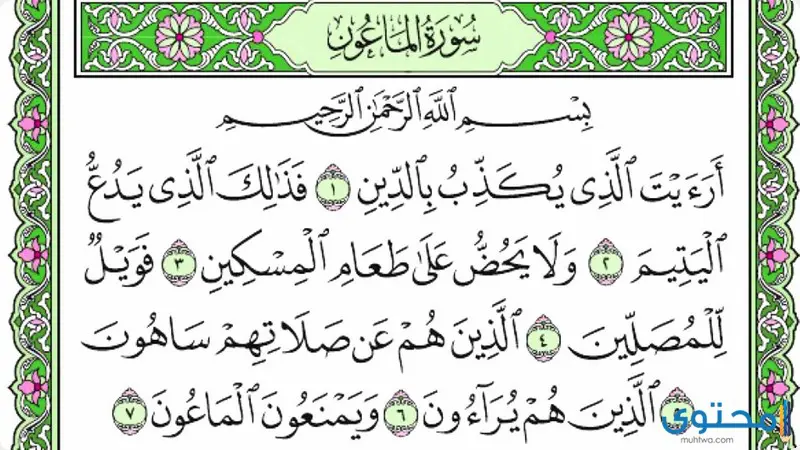 سُورَةُ الْمَاعُونِ
بِسْمِ اللَّهِ الرَّحْمَٰنِ الرَّحِيمِ
أَرَءَيْتَ ٱلَّذِى يُكَذِّبُ بِٱلدِّينِ ١ فَذَٰلِكَ ٱلَّذِى يَدُعُّ
ٱلْيَتِيمَ ٢ وَلَا يَحُضُّ عَلَىٰ طَعَامِ ٱلْمِسْكِينِ ٣ فَوَيْلٌ
لِّلْمُصَلِّينَ ٤ ٱلَّذِينَ هُمْ عَن صَلَاتِهِمْ سَاهُونَ
ٱلَّذِينَ هُمْ يُرَآءُونَ ٦ وَيَمْنَعُونَ ٱلْمَاعُونَ ٧
محتوى
muhtwa.com